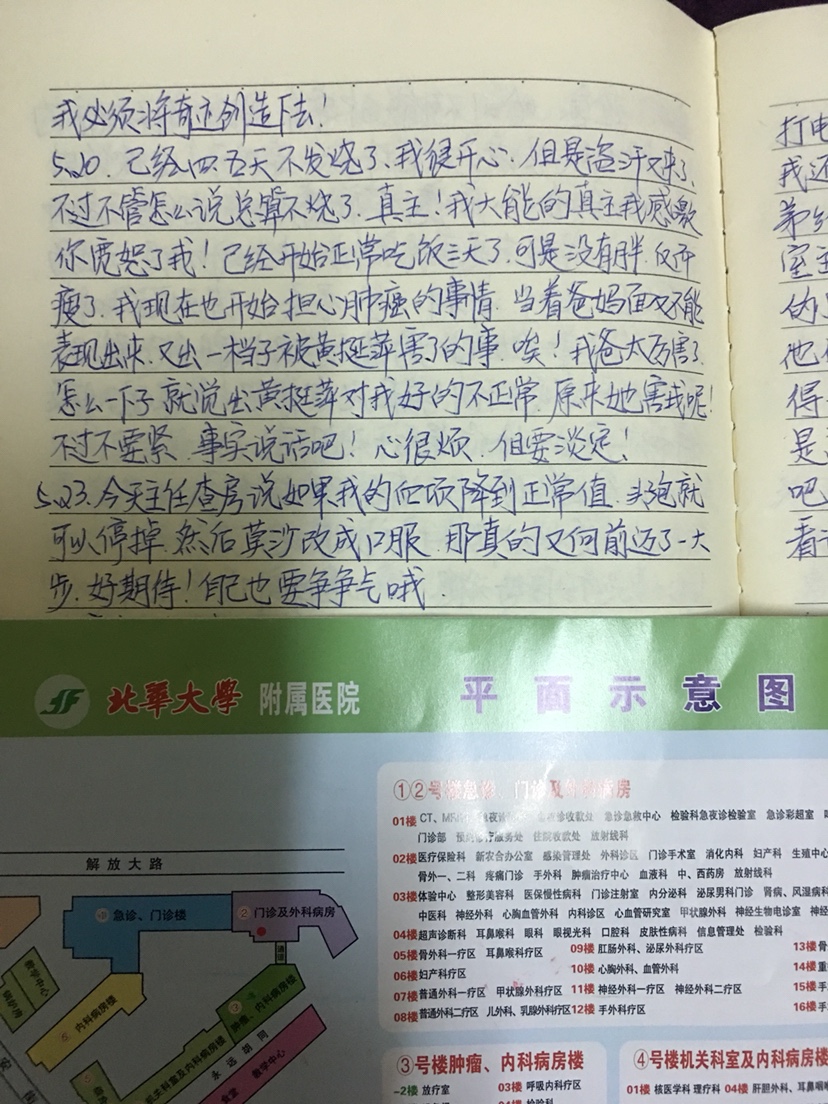 我必须将奇迹创造下去！
5.20. 己经四.五天不发烧了.我很开心.但是盗汗又来了.
不过不管怎么说总算不烧了.真主！我大能的真主我感激
你宽恕了我！己经开始正常吃饭三天了.可是没有胖.反而
瘦了.我现在也开始担心肿瘤的事情.当着爸妈面又不能
表现出来.又出一档子被黄挺萍害了的事.唉！我爸太厉害了.
怎么一下子就说出黄挺萍对我好的不正常.原来她害我呢！
不过不要紧.事实说话吧！心很烦.但要淡定！
5.23.今天主任查房说如果我的四项降到正常值.头孢就
可以停掉.然后莫沙改成口服.那真的又向前迈了一大
步.好期待！自己也要争争气哦.
打电
我还
弟
室主
的
他
得
是
吧
看
北華大學 附属医院
平面示意图
①②号楼急诊、门诊及外科病房
01楼 CT、 急诊急救中心 检验科急夜诊检验室 急诊彩超室
门诊部 预约诊疗服务处 住院收款处 放射线科
02楼 医疗保险科 新农合办公室 感染管理处 外科诊区 门诊手术室 消化内科 妇产科 生殖中心
骨外一、二科 疼痛门诊 手外科 肿瘤治疗中心 血液科 中、西药房 放射线科
03楼 体验中心 整形美容科 医保慢性病科 门诊注射室 内分泌科 泌尿男科门诊 肾病、风湿病科
中医科 神经外科 心胸血管外科 内科诊区 心血管研究室 甲状腺外科 神经生物电诊室 神经
04楼 超声诊断科 耳鼻喉科 眼科 眼视光科 口腔科 皮肤性病科 信息管理处 检验科
05楼 骨外科一疗区 耳鼻喉科疗区 09楼 肛肠外科、泌尿外科疗区 13楼 骨
06楼 妇产科疗区 10楼 心胸外科、血管外科 14楼
07楼 普通外科一疗区 甲状腺外科疗区 11楼 神经外科一疗区 神经外科二疗区 15楼 手
08楼 普通外科二疗区 儿外科、乳腺外科疗区 12楼 手外科疗区 16楼 手
解放大路
急诊、门诊楼
② 门诊及外科病房
通道
内科病房楼
肿瘤、内科病房楼
机关科室及内科病房楼
永远胡同
教学中心
食堂
教学中心
③号楼肿瘤、内科病房楼
-2楼 放疗室 03楼 呼吸内科疗区
04楼 检验科
④号楼机关科室及内科病房
01楼 核医学科 理疗科 04楼 肝胆外科、耳鼻咽喉